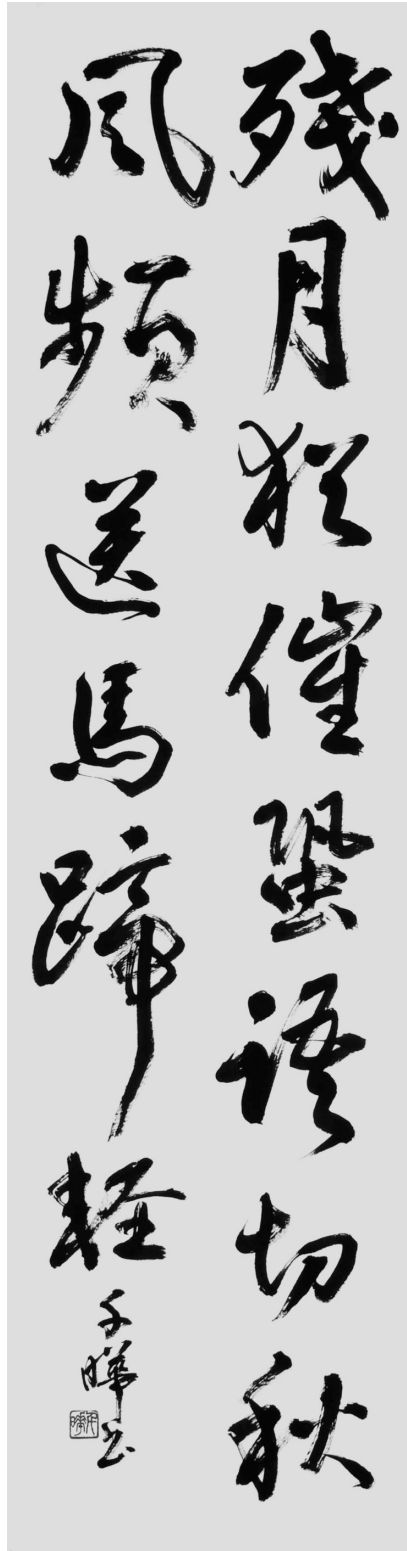 殘月猶催蛩語切秋
風頻送馬蹄輕
千暉书